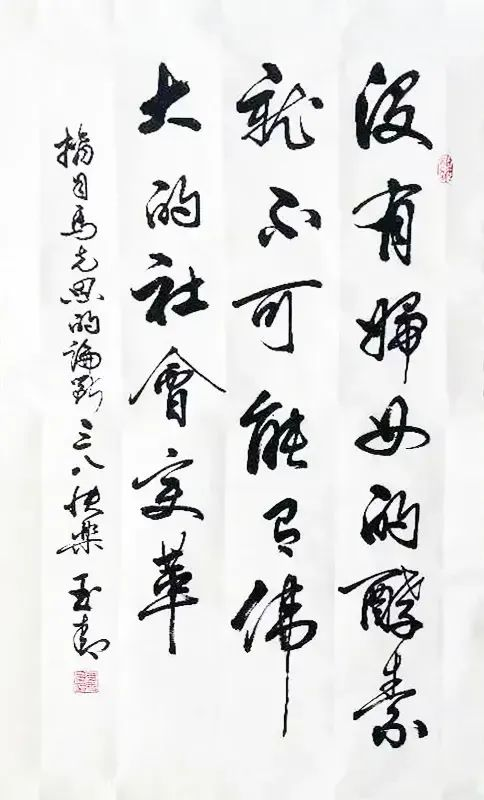 没有婦女的酵素
就不可能有偉
大的社會变革
摘自馬克思的論斷 三八快樂 玉